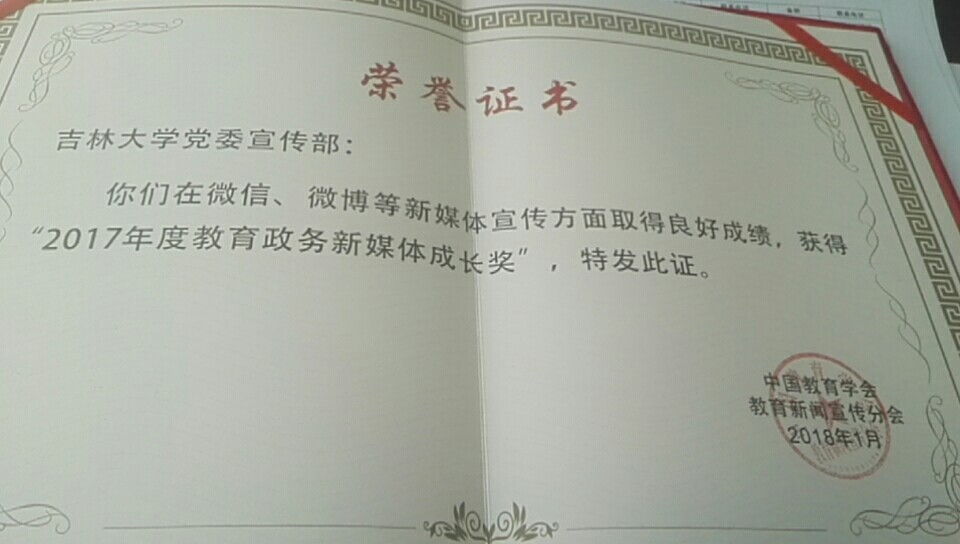 荣誉证书
吉林大学党委宣传部：
你们在微信、微博等新媒体宣传方面取得良好成绩，获得
“2017年度教育政务新媒体成长奖”，特发此证。
中国教育学会
教育新闻宣传分会
2018年1月